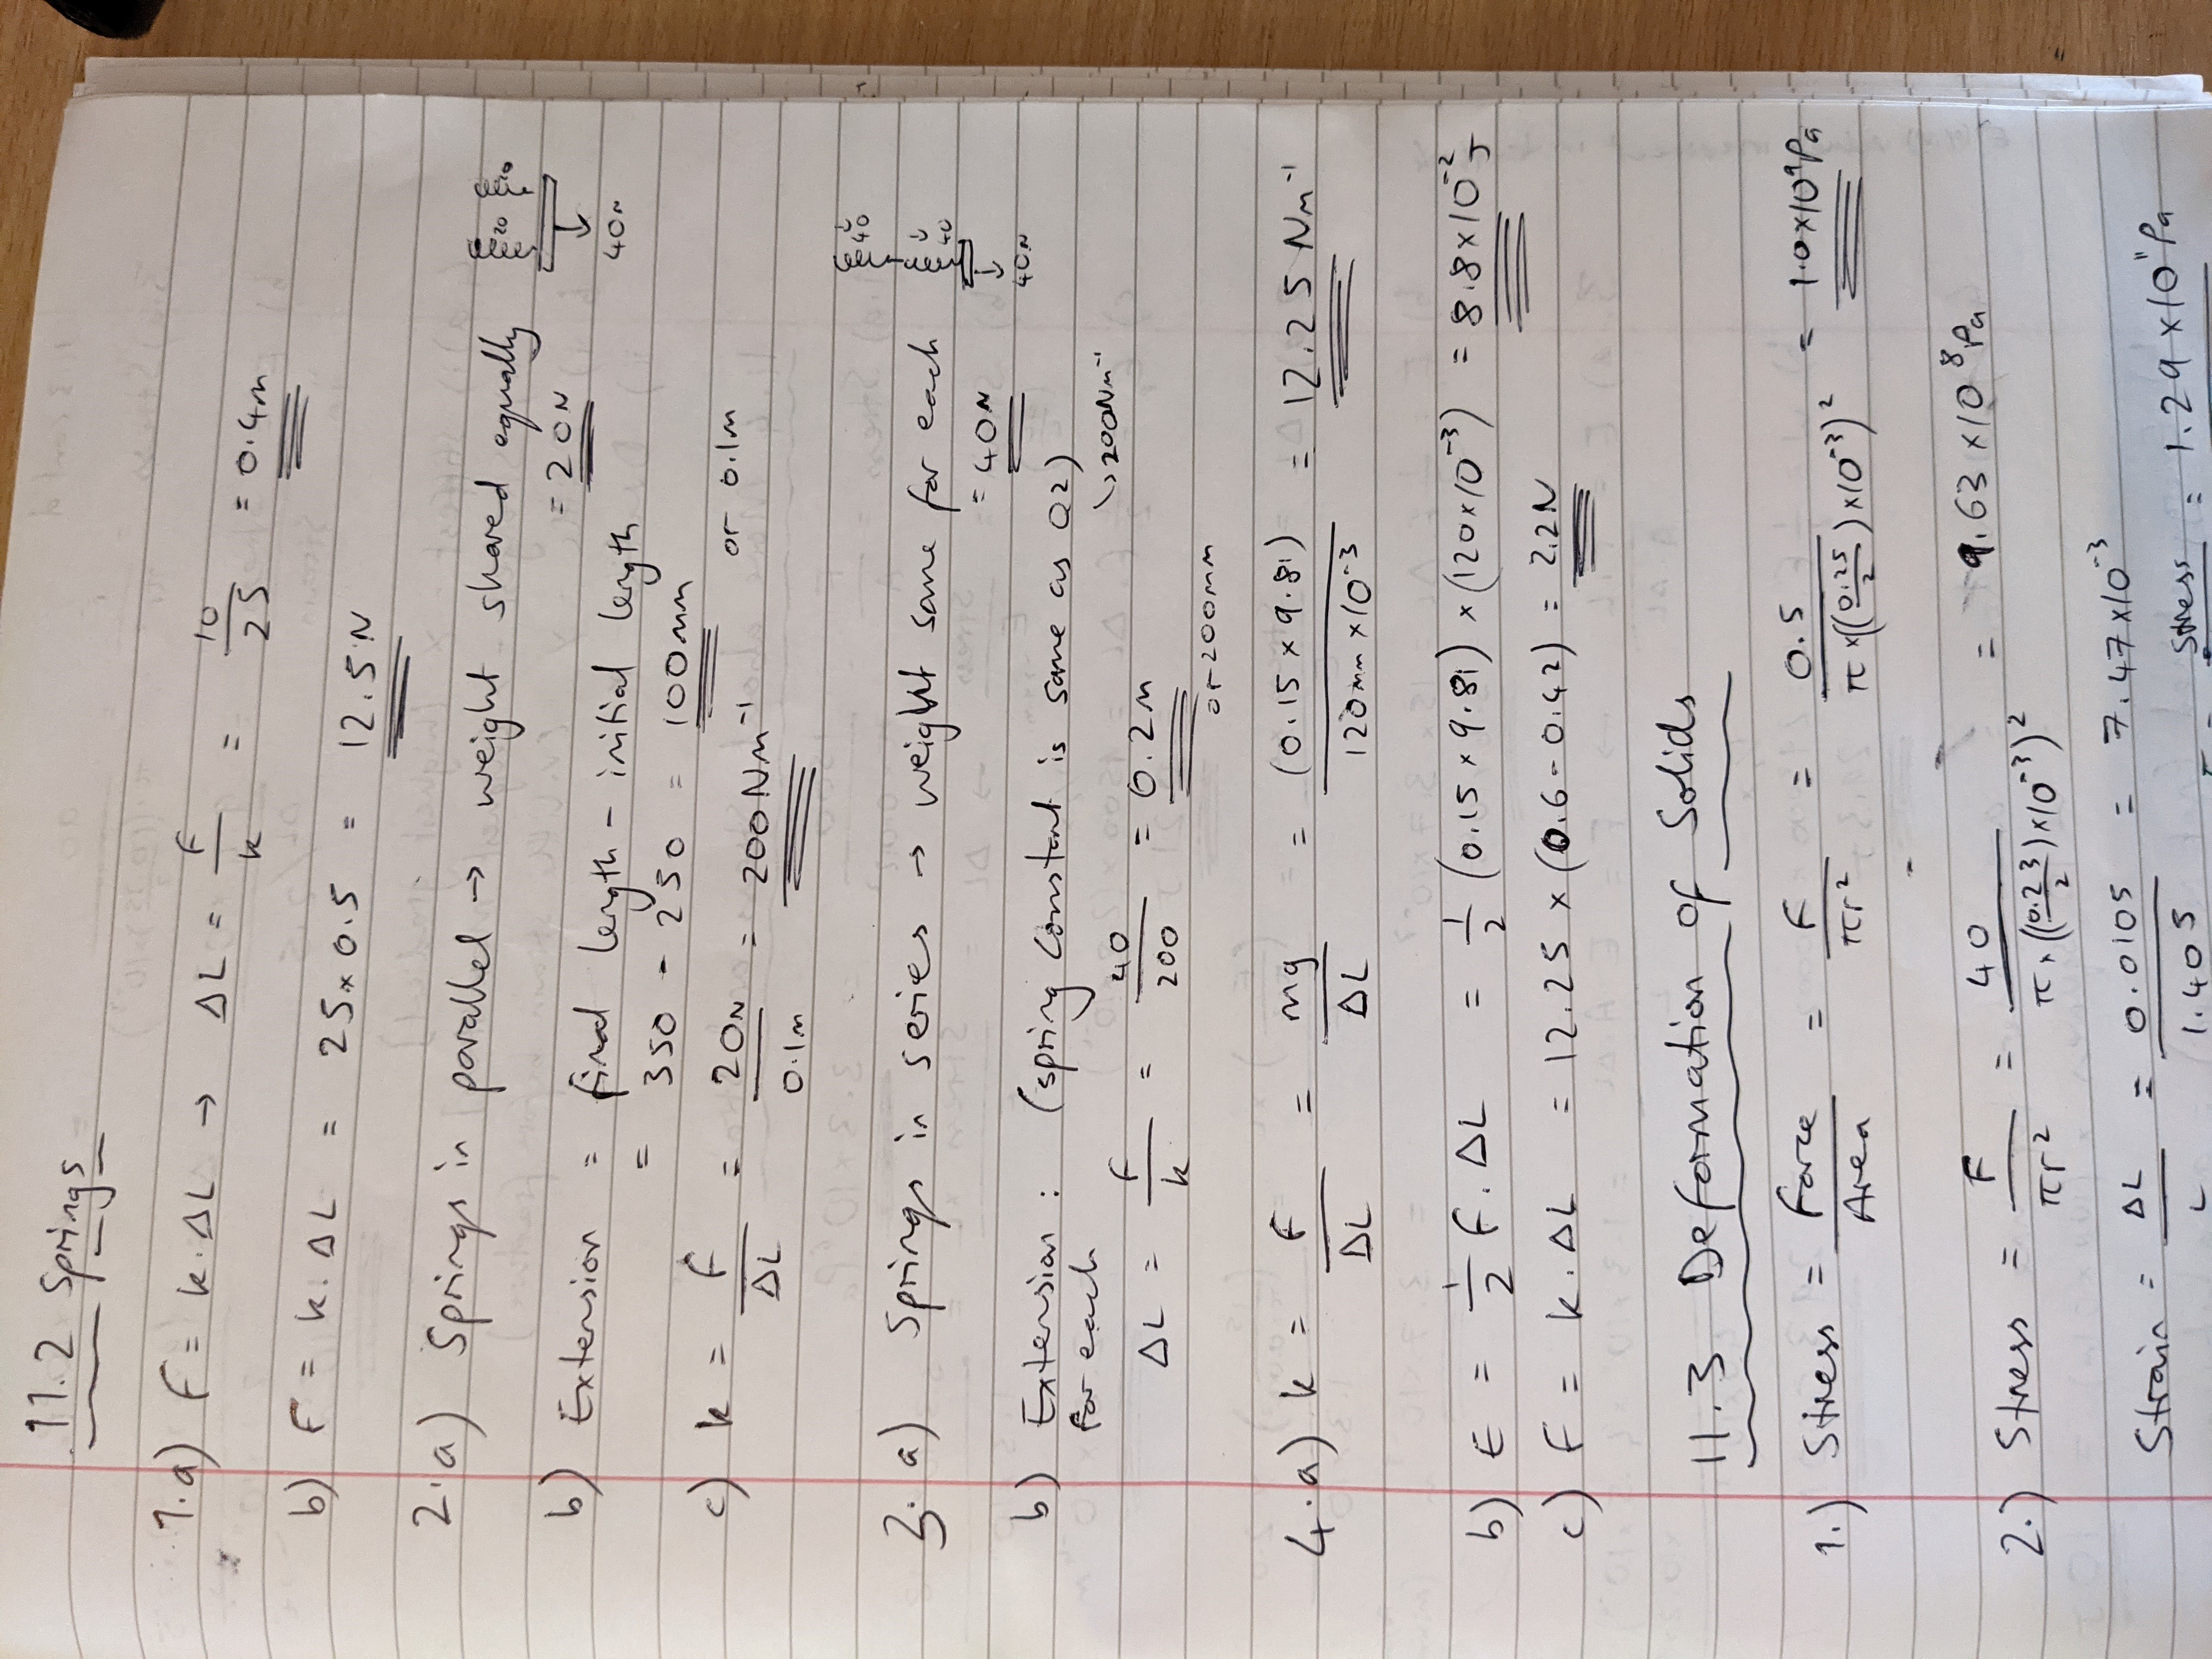 11.2 Springs
1.a) F = k.ΔL → ΔL = F/k = 10/25 = 0.4m
b) F = k.ΔL = 25 x 0.5 = 12.5N
2.a) Springs in parallel → weight shared equally
= 20N
20 20
40N
b) Extension = final length - initial length
= 350 - 250 = 100mm or 0.1m
c) k = F/ΔL = 20N/0.1m = 200Nm⁻¹
3.a) Springs in series → weight same for each
= 40N
40
40
40N
b) Extension : (spring constant is same as Q2)
for each ↳ 200Nm⁻¹
ΔL = F/k = 40/200 = 0.2m
or 200mm
4.a) k = F/ΔL = mg/ΔL = (0.15 x 9.81)/120mm x 10⁻³ = 12.25 Nm⁻¹
b) E = 1/2 F.ΔL = 1/2 (0.15 x 9.81) x (120x10⁻³) = 8.8x10⁻² J
c) F = k.ΔL = 12.25 x (0.6-0.42) = 2.2N
11.3 Deformation of Solids
1.) Stress = Force/Area = F/πr² = 0.5/π x((0.25/2)x10⁻³)² = 1.0x10⁷Pa
2.) Stress = F/πr² = 40/π.((0.23/2)x10⁻³)² = 9.63 x10⁸Pa
Strain = ΔL/L = 0.0105/1.405 = 7.47x10⁻³
Stress = 1.29 x10¹¹Pa